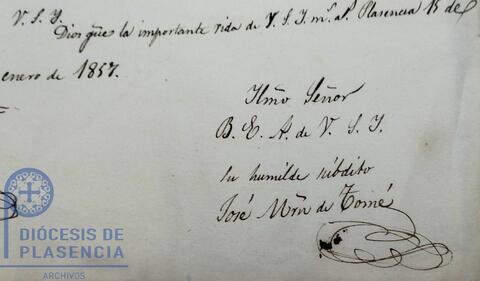 V. S. Y.
Dios güe la importante vida de V. S. Y. ms. as. Plasencia 15 de
enero de 1857.
Ylmo Señor
B. E. A. de V. S. Y.
su humilde súbdito
José Mrn de Tomé
DIÓCESIS DE
PLASENCIA
ARCHIVOS